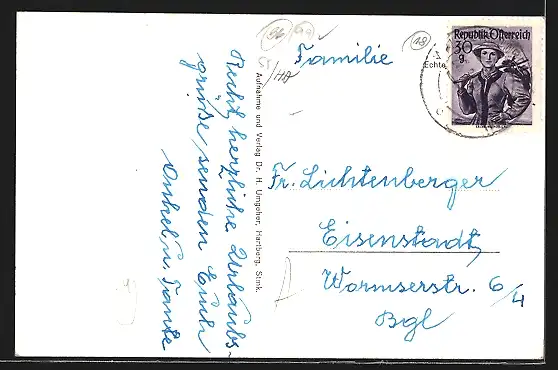 Recht herzliche Urlaubs-
grüße senden Euch
Onkel u. Tante
Aufnahme und Verlag Dr. H. Umgeher, Hartberg, Stmk.
Echte
Republik Österreich
30
g
96
99
18
Familie
Fr. Lichtenberger
Eisenstadt,
Wormserstr. 6/4
Bgl